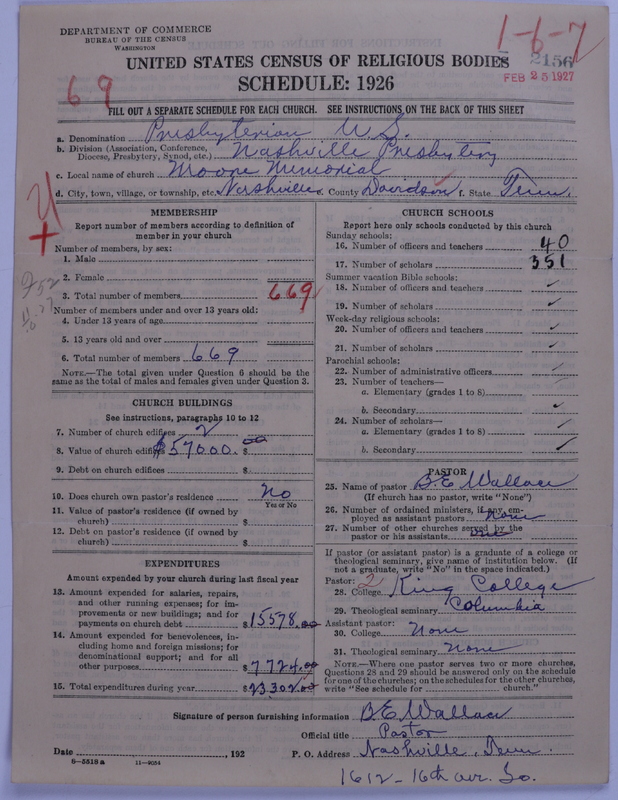 DEPARTMENT OF COMMERCE
BUREAU OF THE CENSUS
WASHINGTON
1-6-7
2156
FEB 25 1927
UNITED STATES CENSUS OF RELIGIOUS BODIES
SCHEDULE: 1926
69
FILL OUT A SEPARATE SCHEDULE FOR EACH CHURCH. SEE INSTRUCTIONS ON THE BACK OF THIS SHEET
a. Denomination Presbyterian U.S.
b. Division (Association, Conference, Diocese, Presbytery, Synod, etc.) Nashville Presbytery
c. Local name of church Moore Memorial
d. City, town, village, or township, etc. Nashville e. County Davidson f. State Tenn.
MEMBERSHIP
Report number of members according to definition of
member in your church
Number of members, by sex:
1. Male
2. Female
3. Total number of members 669
Number of members under and over 13 years old:
4. Under 13 years of age
5. 13 years old and over
6. Total number of members 669
NOTE.—The total given under Question 6 should be the
same as the total of males and females given under Question 3.
CHURCH BUILDINGS
See instructions, paragraphs 10 to 12
7. Number of church edifices 2
8. Value of church edifices $57000.00 $
9. Debt on church edifices $
10. Does church own pastor's residence No
Yes or No
11. Value of pastor's residence (if owned by
church) $
12. Debt on pastor's residence (if owned by
church) $
EXPENDITURES
Amount expended by your church during last fiscal year
13. Amount expended for salaries, repairs,
and other running expenses; for im-
provements or new buildings; and for
payments on church debt $15578.00
14. Amount expended for benevolences, in-
cluding home and foreign missions; for
denominational support; and for all
other purposes $7724.00
15. Total expenditures during year $23302.00
CHURCH SCHOOLS
Report here only schools conducted by this church
Sunday schools:
16. Number of officers and teachers 40
17. Number of scholars 351
Summer vacation Bible schools:
18. Number of officers and teachers ✓
19. Number of scholars ✓
Week-day religious schools:
20. Number of officers and teachers ✓
21. Number of scholars ✓
Parochial schools:
22. Number of administrative officers ✓
23. Number of teachers—
a. Elementary (grades 1 to 8)
b. Secondary ✓
24. Number of scholars—
a. Elementary (grades 1 to 8) ✓
b. Secondary ✓
PASTOR
25. Name of pastor B.E. Wallace
(If church has no pastor, write "None")
26. Number of ordained ministers, if any, em-
ployed as assistant pastors none
27. Number of other churches served by the
pastor or his assistants
If pastor (or assistant pastor) is a graduate of a college or
theological seminary, give name of institution below. (If
not a graduate, write "No" in the space indicated.)
Pastor: 2
28. College King College
29. Theological seminary Columbia
Assistant pastor:
30. College None
31. Theological seminary none
NOTE.—Where one pastor serves two or more churches,
Questions 28 and 29 should be answered only on the schedule
for one of the churches; on the schedules for the other churches,
write "See schedule for church."
Signature of person furnishing information B.E. Wallace
Official title Pastor
Date , 192
P. O. Address Nashville, Tenn.
8-5518a 11-9054
1612-16th ave. So.